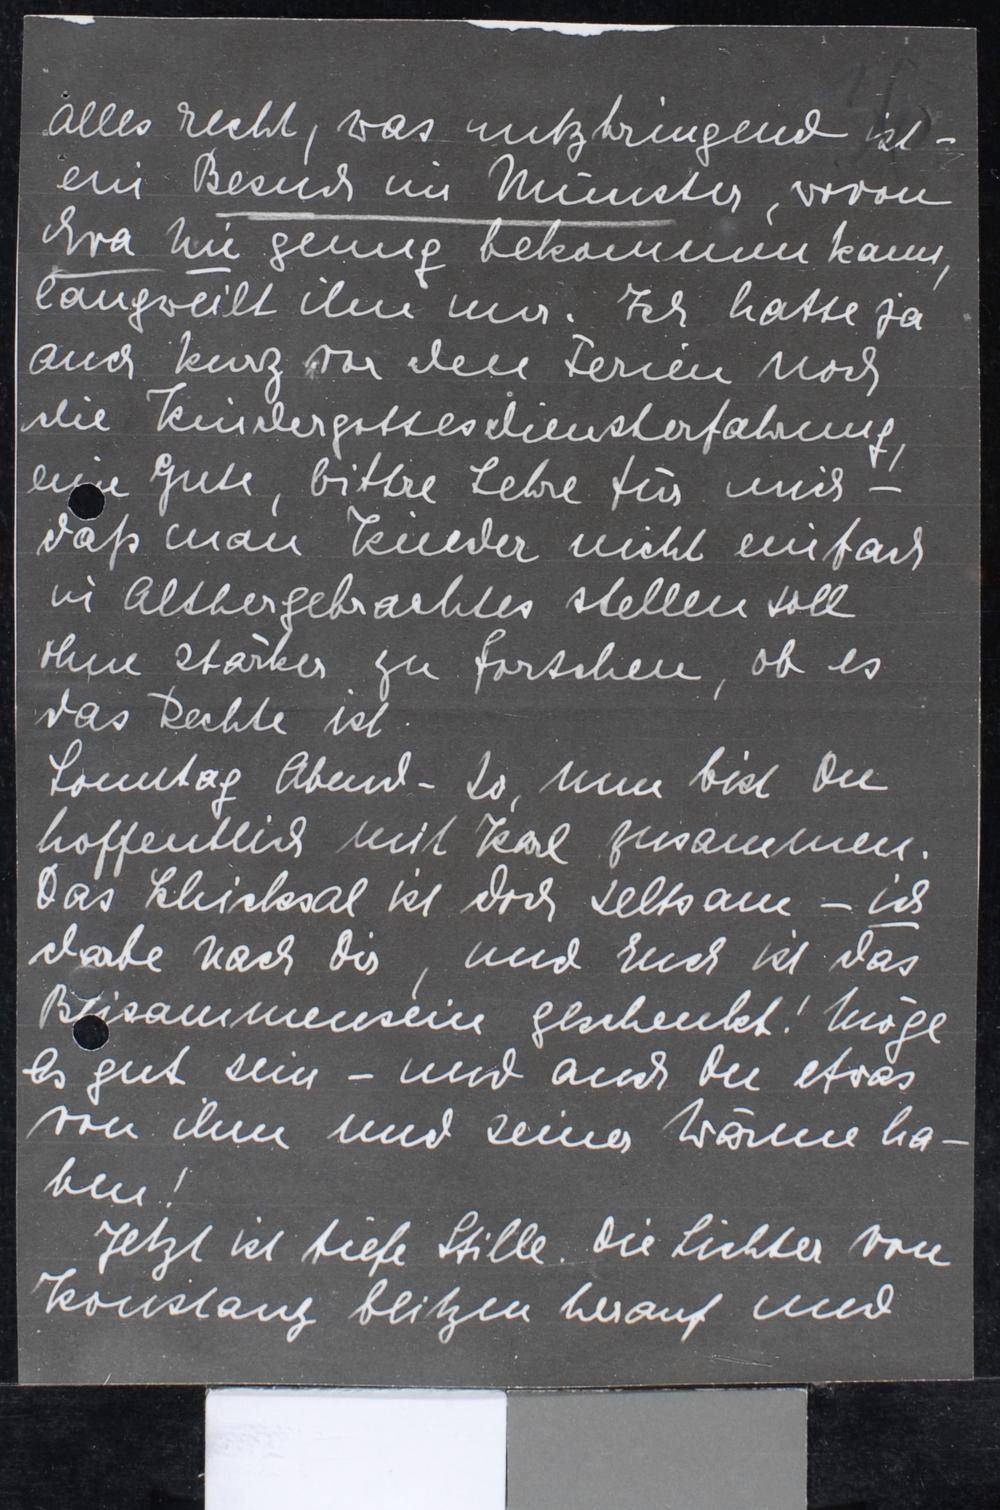 alles recht, was nutzbringend ist –
ein Besuch im Münster, wovon
Eva nie genug bekommen kann,
langweilt ihn nur. Ich hatte ja
auch kurz vor den Ferien noch
die Kindergottesdiensterfahrung,
eine gute, bittre Lehre für mich –
daß man Kinder nicht einfach
in Althergebrachtes stellen soll
ohne stärker zu forschen, ob es
das Rechte ist.
Sonntag Abend – So, nun bist Du
hoffentlich mit Karl zusammen.
Das Schicksal ist doch seltsam – ich
darbe nach Dir, und Euch ist das
Beisammensein geschenkt! Möge
es gut sein – und auch Du etwas
von ihm und seiner Wärme ha-
ben!
Jetzt ist tiefe Stille. Die Lichter von
Konstanz blitzen herauf und